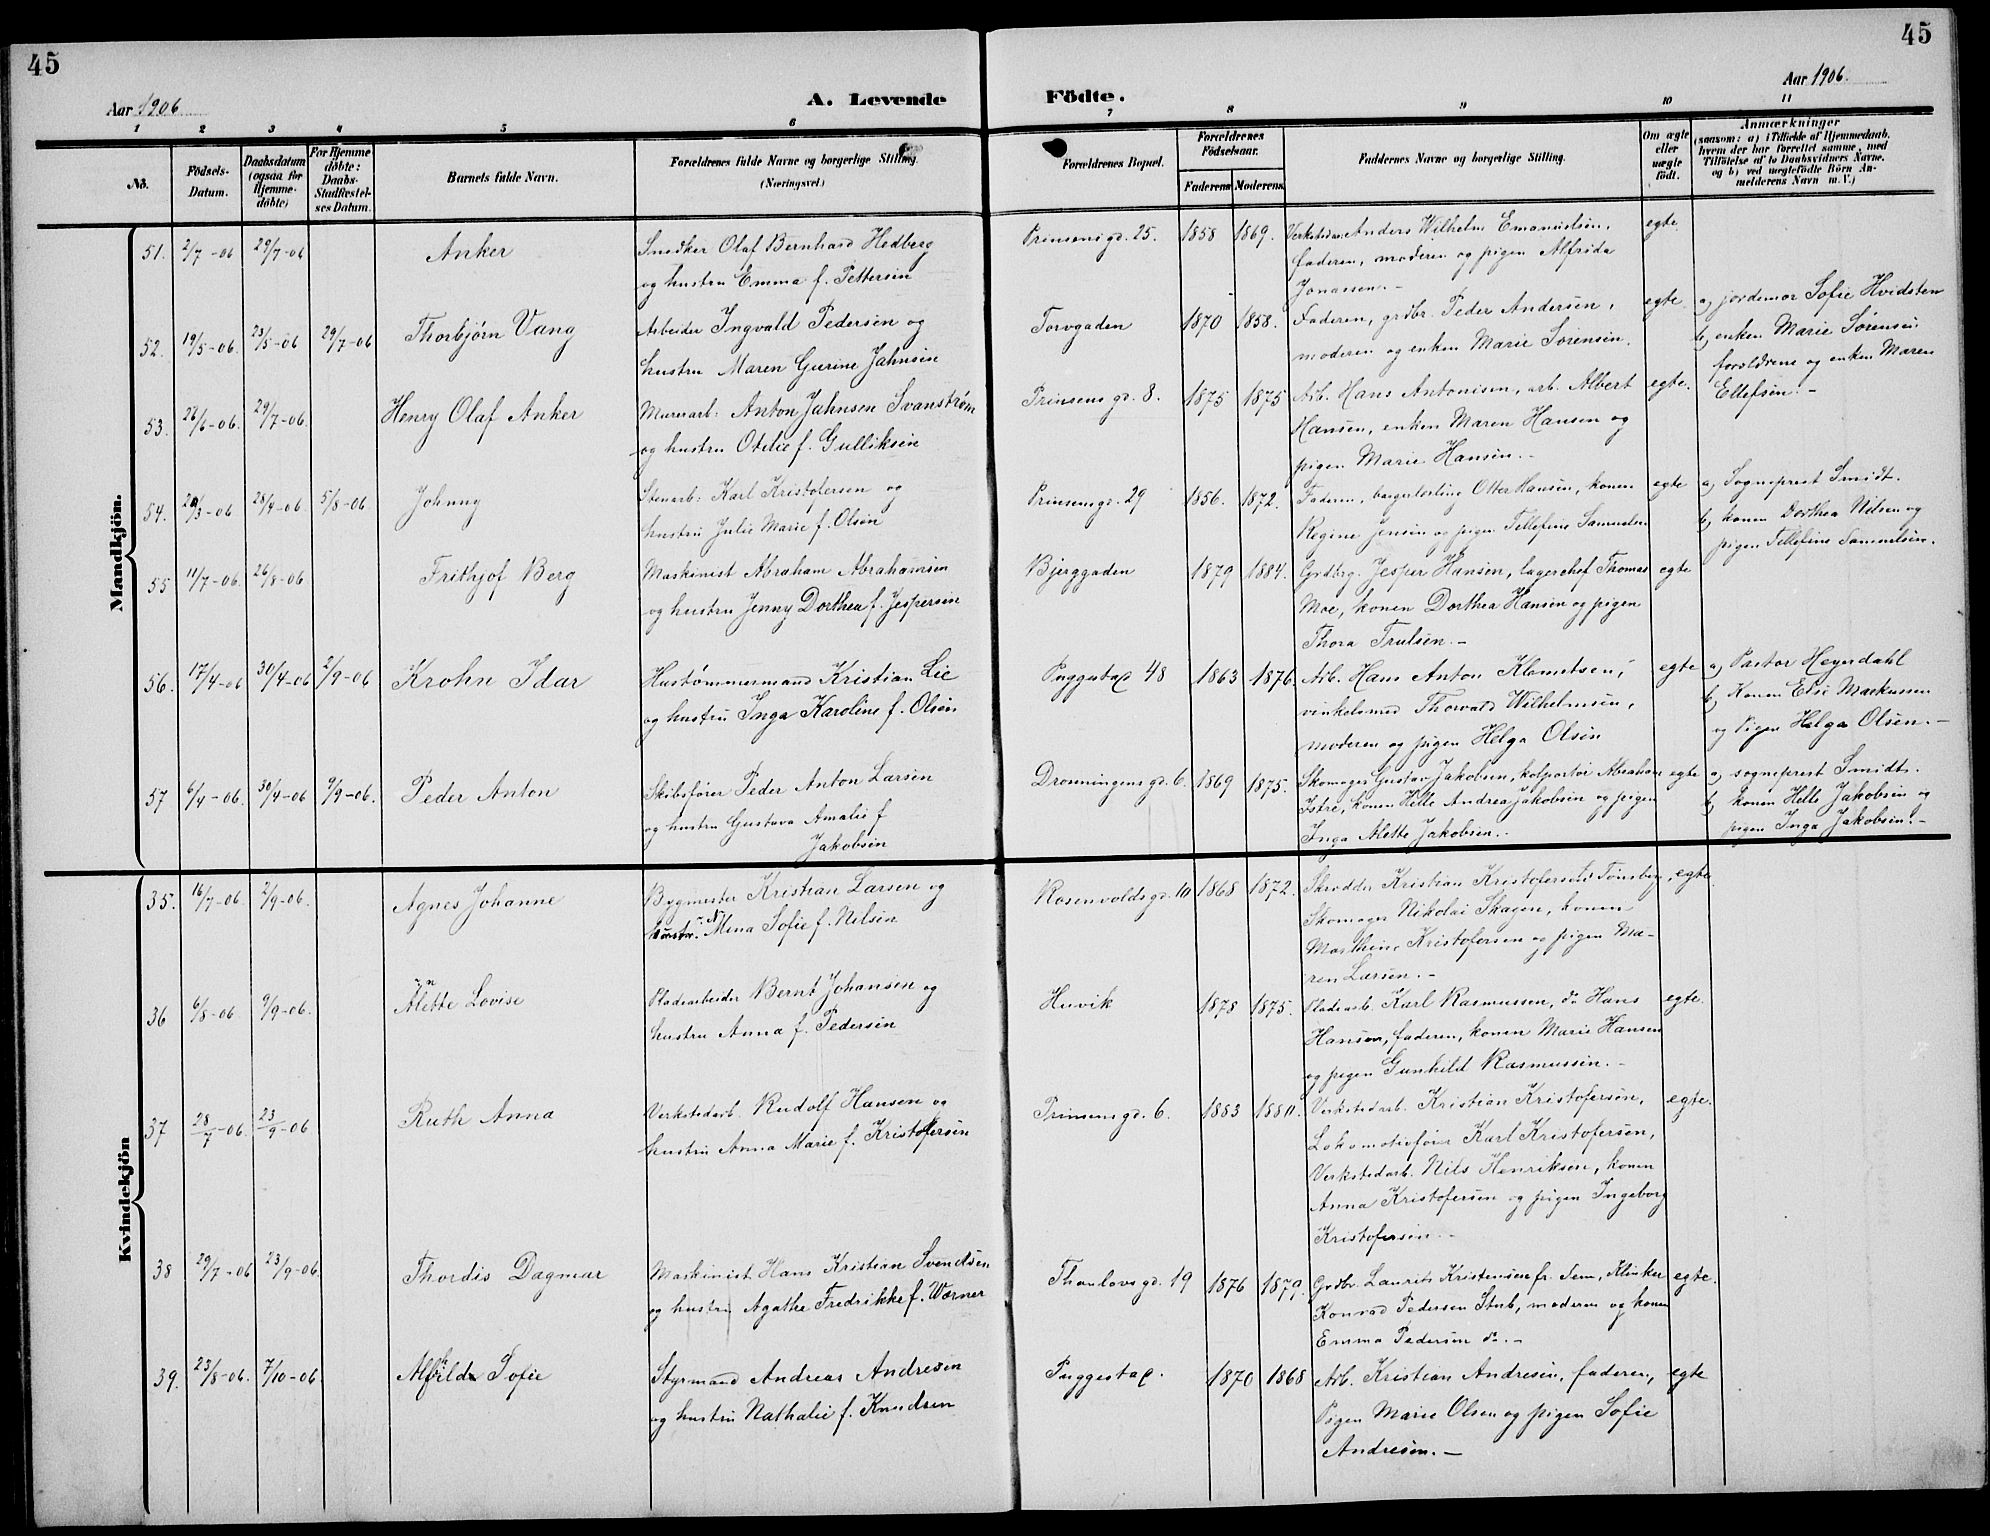 45
45
Aar 1906
A. Levende Födte.
Aar 1906.
1 2 3 4 5 6 7 8 9 10 11
No. Födsels-Datum. Daabsdatum (ogsaa for Hjemme-döbte) For Hjemme döbte: Daabs-Stadfæstel-ses Datum. Barnets fulde Navn. Forældrenes fulde Navne og borgerlige Stilling. (Næringsvei.) Forældrenes Bopæl. Forældrenes Födselsaar. Faderens Moderens Faddernes Navne og borgerlige Stilling. Om ægte eller uægte födt. Anmærkninger (saasom: a) i Tilfælde af Hjemmedaab, hvem der har forrettet samme, med Tilföielse af to Daabsvidners Navne, og b) ved uægtefödte Börn An-melderens Navn m. V.)
Mandkjön.
51. 2/7-06 29/7-06 Anker Snedker Olaf Bernhard Hedberg Prinsensgd. 25. 1858 1869. Verkstedarb. Anders Wilhelm Emanuelsen, egte
og hustru Emma f. Pettersen faderen, moderen og pigen Alfrida
Jonassen.-
52. 19/5-06. 23/5-06 29/7-06 Thorbjørn Vang Arbeider Ingvald Pedersen og Torvgaden 1870 1858. Faderen, grdbr. Peder Andersen, egte a, jordemor Sofie Hvidsten
hustru Maren Gurine Jahnsen moderen og enken Marie Sørensen. b, enken Marie Sørensen
forældrene og enken Maren
Ellefsen.-
53. 26/6-06. 29/7-06. Henry Olaf Anker Murerarb: Anton Jahnsen Svanstrøm Prinsensgd. 8. 1875 1875 Arb. Hans Antonisen, arb. Albert egte.
og hustru Otilie f. Gulliksen Hansen, enken Maren Hansen og
pigen Marie Hansen.-
54. 28/4-06. 5/8-06. Johnny Stenarb: Karl Kristofersen og Prinsensgd. 29 1856. 1872. Faderen, Otter Hansen, konen egte a, Sogneprest Smidt.
hustru Julie Marie f. Olsen Regine Jensen og pigen Tellefine Samuelsen b, konen Dorthea Nilsen og
pigen Tellefine Samuelsen.
55 11/7-06. 26/8-06 Frithjof Berg Maskinist Abraham Abrahamsen Bjerggaden 1879 1884. Grdbrg. Jesper Hansen, lagerchef Thomas egte
og hustru Jenny Dorthea f. Jespersen Moe, konen Dorthea Hansen og pigen
Thora Trulsen.-
56. 17/4-06 30/4-06 2/9-06 Krohn Idar Hustømmermand Kristian Lie Puggestad 48 1863 1876. Arb. Hans Anton Klemetsen, egte a, Pastor Heyerdahl
og hustru Inga Karoline f. Olsen Thorvald Wilhelmsen, b, Konen Elsi Markussen
moderen og pigen Helga Olsen og Pigen Helga Olsen.-
57 6/4-06. 30/4-06 9/9-06. Peder Anton Skibsfører Peder Anton Larsen Dronningensgd. 6. 1869 1875. Skomager Gustav Jakobsen, kolportør Abraham egte a, sogneprest Smidt.
og hustru Gustava Amalie f Istre, konen Helle Andrea Jakobsen og pigen b, konen Helle Jakobsen og
Jakobsen Inga Alette Jakobsen.- pigen Inga Jakobsen.-
Kvindekjön
35. 16/7-06. 2/9-06. Agnes Johanne Bygmester Kristian Larsen og Rosenvoldsgd. 10 1868 1872. Skredder Kristian Kristofersen, Tønsberg, egte.
hustru Mina Sofie f. Nilsen Skomager Nikolai Skagen, konen
Marthine Kristofersen og pigen Ma-
ren Larsen.-
36 6/8-06 9/9-06. Alette Lovise Pladearbeider Bernt Johansen og Husvik 1878 1875. Pladearb. Karl Rasmussen, do Hans egte.
hustru Anna f. Pedersen Hansen, faderen, konen Marie Hansen
og pigen Gunhild Rasmussen.-
37 28/7-06. 23/9-06 Ruth Anna Verkstedarb. Rudolf Hansen og Prinsensgd. 6. 1883 1880. Verkstedarb. Kristian Kristofersen, egte.
hustru Anna Marie f. Kristofersen Lokomotivfører Karl Kristofersen,
Verkstedarb. Nils Henriksen, konen
Anna Kristofersen og pigen Ingeborg
Kristofersen.-
38 29/7-06 23/9-06. Thordis Dagmar Maskinist Hans Kristian Svendsen Thaulovsgd. 19 1876 1879. Grdbr. Laurits Kristensen fr. Sem, Klinker egte.
og hustru Agathe Fredrikke f. Wærner Konrad Pedersen Stub, moderen og konen
Emma Pedersen do.-
39. 23/8-06. 7/10-06. Alfhild Sofie Styrmand Andreas Andresen Puggestad. 1870 1868 Arb. Kristian Andresen, faderen, egte
og hustru Nathalie f. Knudsen Pigen Marie Olsen og pigen Sofie
Andresen.-